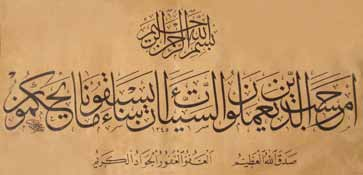 بسم الله الرحمن الرحيم
ام حسب الذين يعملون السيئات ان يسبقونا ساء ما يحكمون
صدق الله العظيم العفو الغفور الجواد الكريم